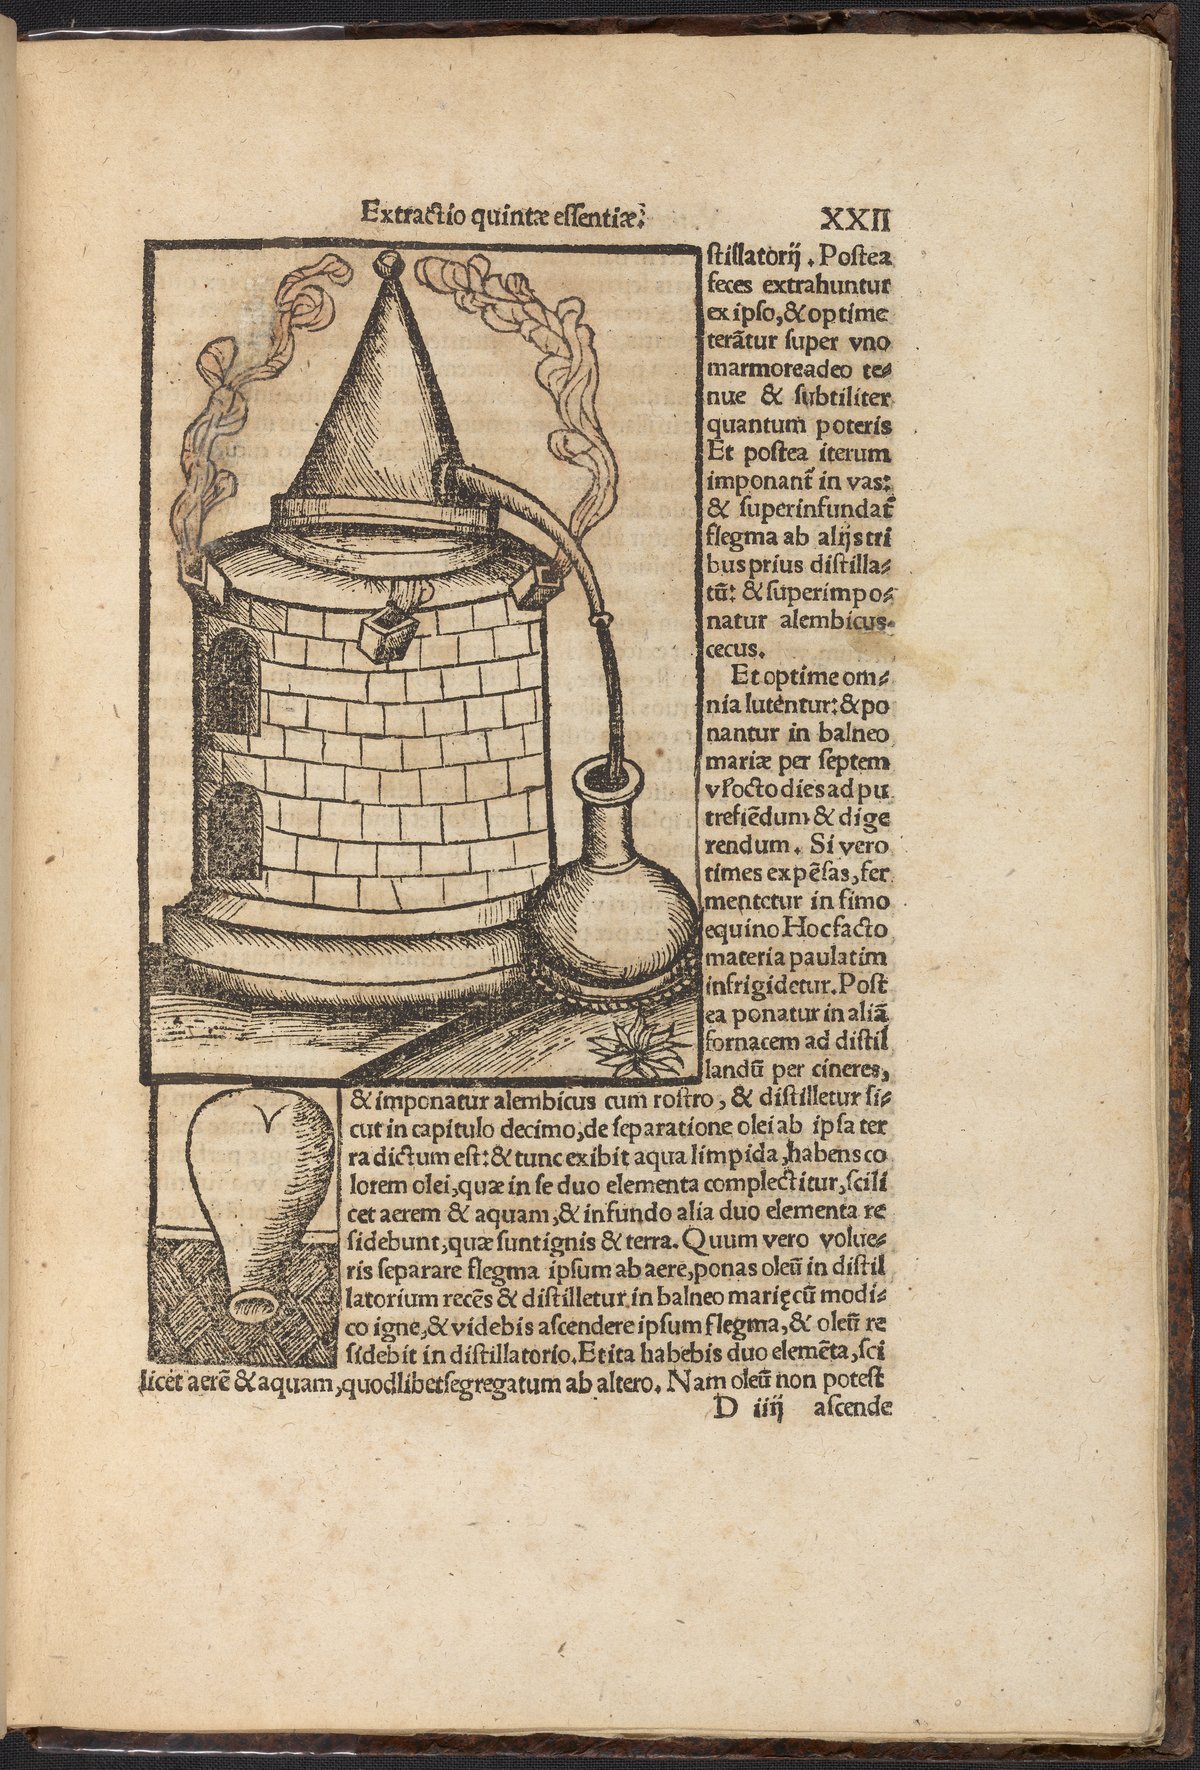 Extractio quintæ essentiæ.
XXII
stillatorij . Postea
feces extrahuntur
ex ipso, & optime
terãtur super vno
marmore adeo te⸗
nue & subtiliter
quantum poteris
Et postea iterum
imponant̃ in vas:
& superinfundat̃
flegma ab alijs tri
bus prius distilla⸗
tũ: & superimpo⸗
natur alembicus
cecus.
Et optime om⸗
nia lutentur: & po
nantur in balneo
mariæ per septem
vl̕ octo dies ad pu
trefiẽdum & dige
rendum. Si vero
times expẽsas, fer
mentetur in fimo
equino Hoc facto
materia paulatim
infrigidetur. Post
ea ponatur in aliã
fornacem ad distil
landũ per cineres,
& imponatur alembicus cum rostro, & distilletur si⸗
cut in capitulo decimo, de separatione olei ab ipsa ter
ra dictum est: & tunc exibit aqua limpida, habens co
lorem olei, quæ in se duo elementa complectitur, scili
cet aerem & aquam, & in fundo alia duo elementa re
sidebunt, quæ sunt ignis & terra. Quum vero volue⸗
ris separare flegma ipsum ab aere, ponas oleũ in distil
latorium recẽs & distilletur in balneo marię cũ modi⸗
co igne, & videbis ascendere ipsum flegma, & oleũ re
sidebit in distillatorio. Et ita habebis duo elemẽta, sci
licet aerẽ & aquam, quodlibet segregatum ab altero. Nam oleũ non potest
D iiij ascende